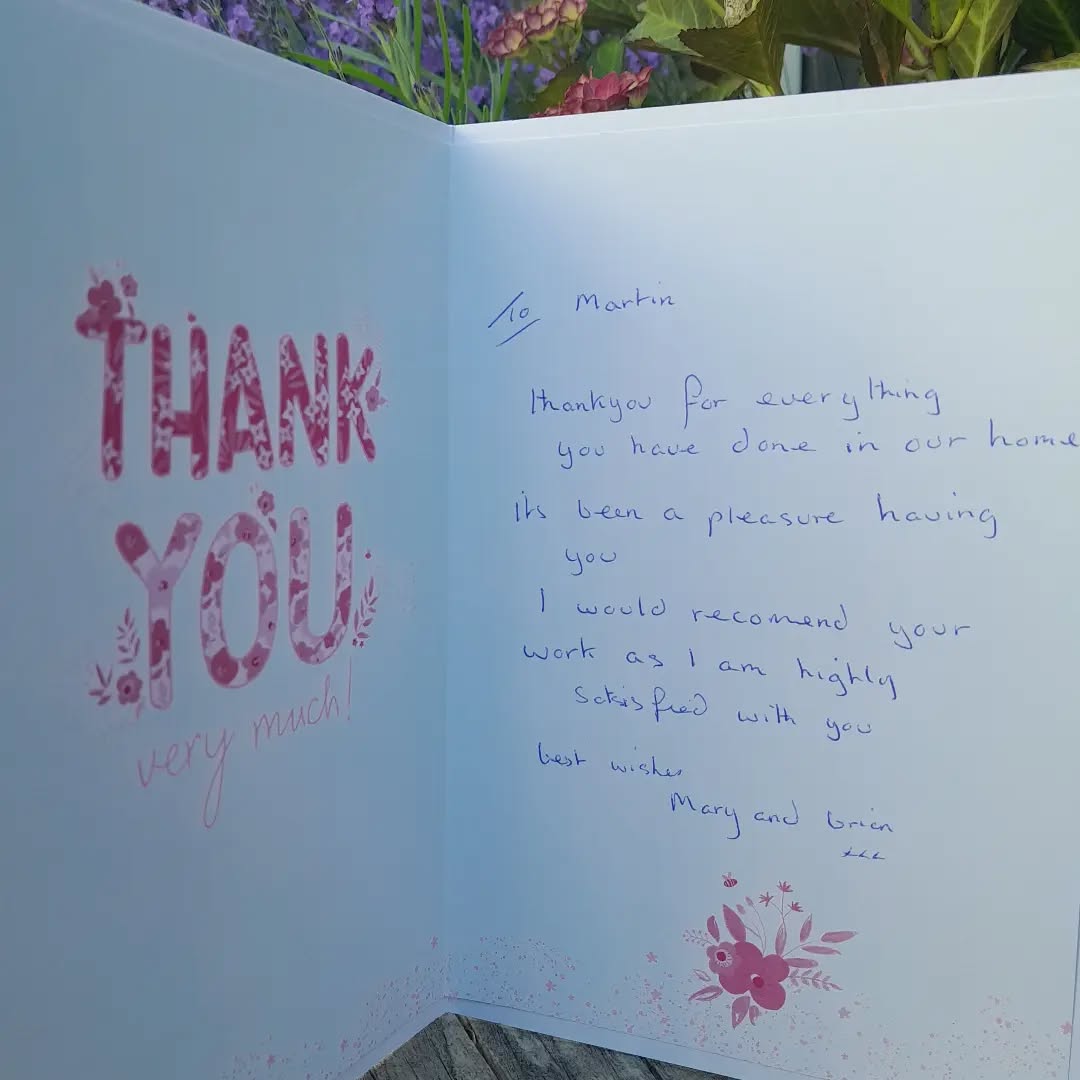 THANK
YOU
very much!
To Martin
thankyou for everything
you have done in our home
its been a pleasure having
you
I would recomend your
work as I am highly
satisfied with you
best wishes
Mary and brian
xxx